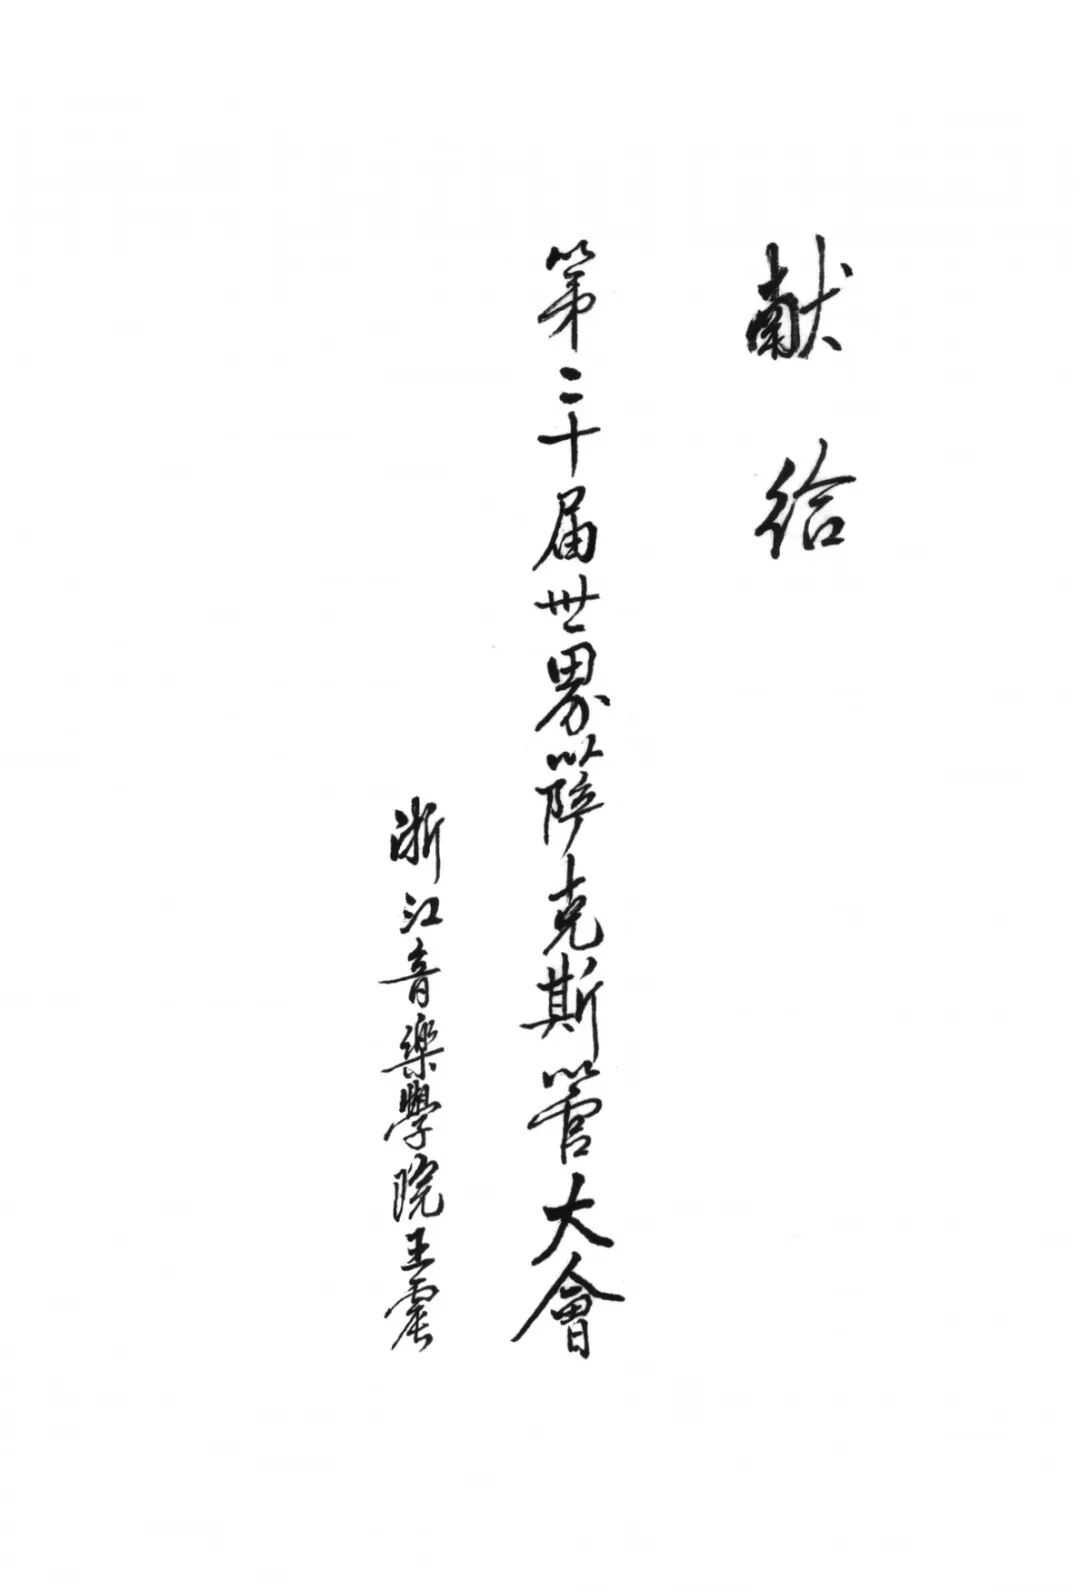 献给
第二十届世界萨克斯管大會
浙江音樂學院王震